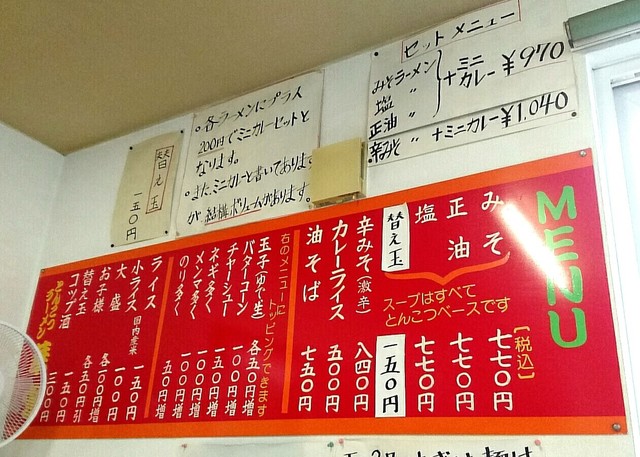 セットメニュー
みそラーメン
塩 〃
正油 〃
+ミニカレー ¥970
辛みそ 〃 +ミニカレー ¥1,040
○各ラーメンにプラス
200円でミニカレーセットと
なります。
○また、ミニカレーと書いてあります
が 結構ボリュームがあります。
替え玉
一五〇円
MENU
[税込]
みそ 七七〇円
正油 七七〇円
塩 七七〇円
スープはすべて
とんこつベースです
替え玉 一五〇円
辛みそ(激辛) 八四〇円
カレーライス 五〇〇円
油そば 七五〇円
右のメニューに
トッピングできます
玉子(ゆで・生) 各五〇円増
バターコーン 一〇〇円増
チャーシュー
ネギ多く 一五〇円増
メンマ多く 一〇〇円増
のり多く 五〇円増
ライス 一五〇円
小ライス 国内産米 一〇〇円
大盛 一〇〇円増
お子様 各五〇円引
替え玉 一五〇円
コップ酒 三〇〇円
とんこつ
ラーメン